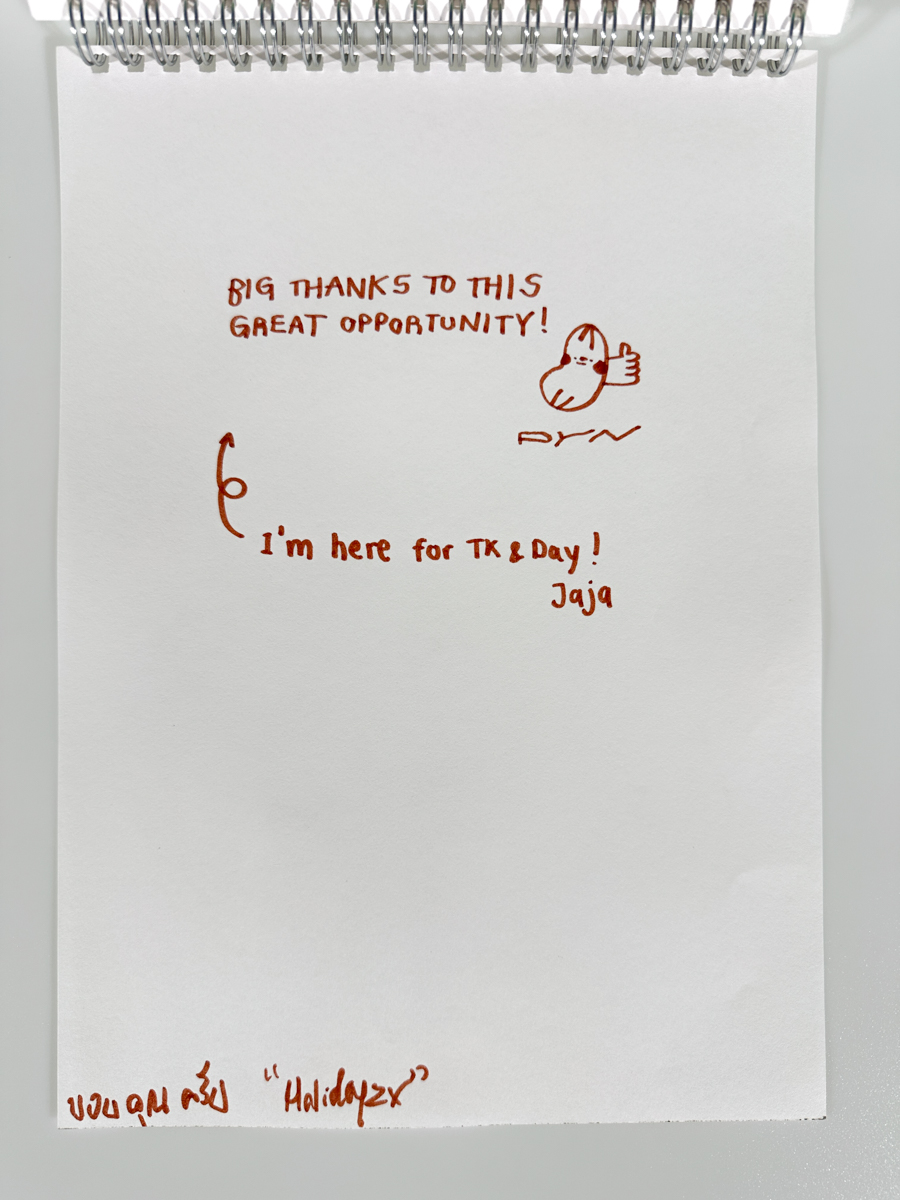 BIG THANKS TO THIS
GREAT OPPORTUNITY!
PYN
I'm here for TK & Day!
Jaja
ขอบคุณครับ "Holidayzx"